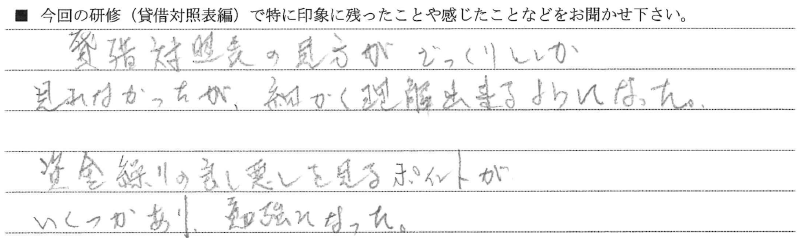 ■ 今回の研修（貸借対照表編）で特に印象に残ったことや感じたことなどをお聞かせ下さい。
貸借対照表の見方がざっくりとしか
見れなかったが、細かく理解出来るようになった。
資金繰りの良し悪しを見るポイントが
いくつかあり、勉強になった。